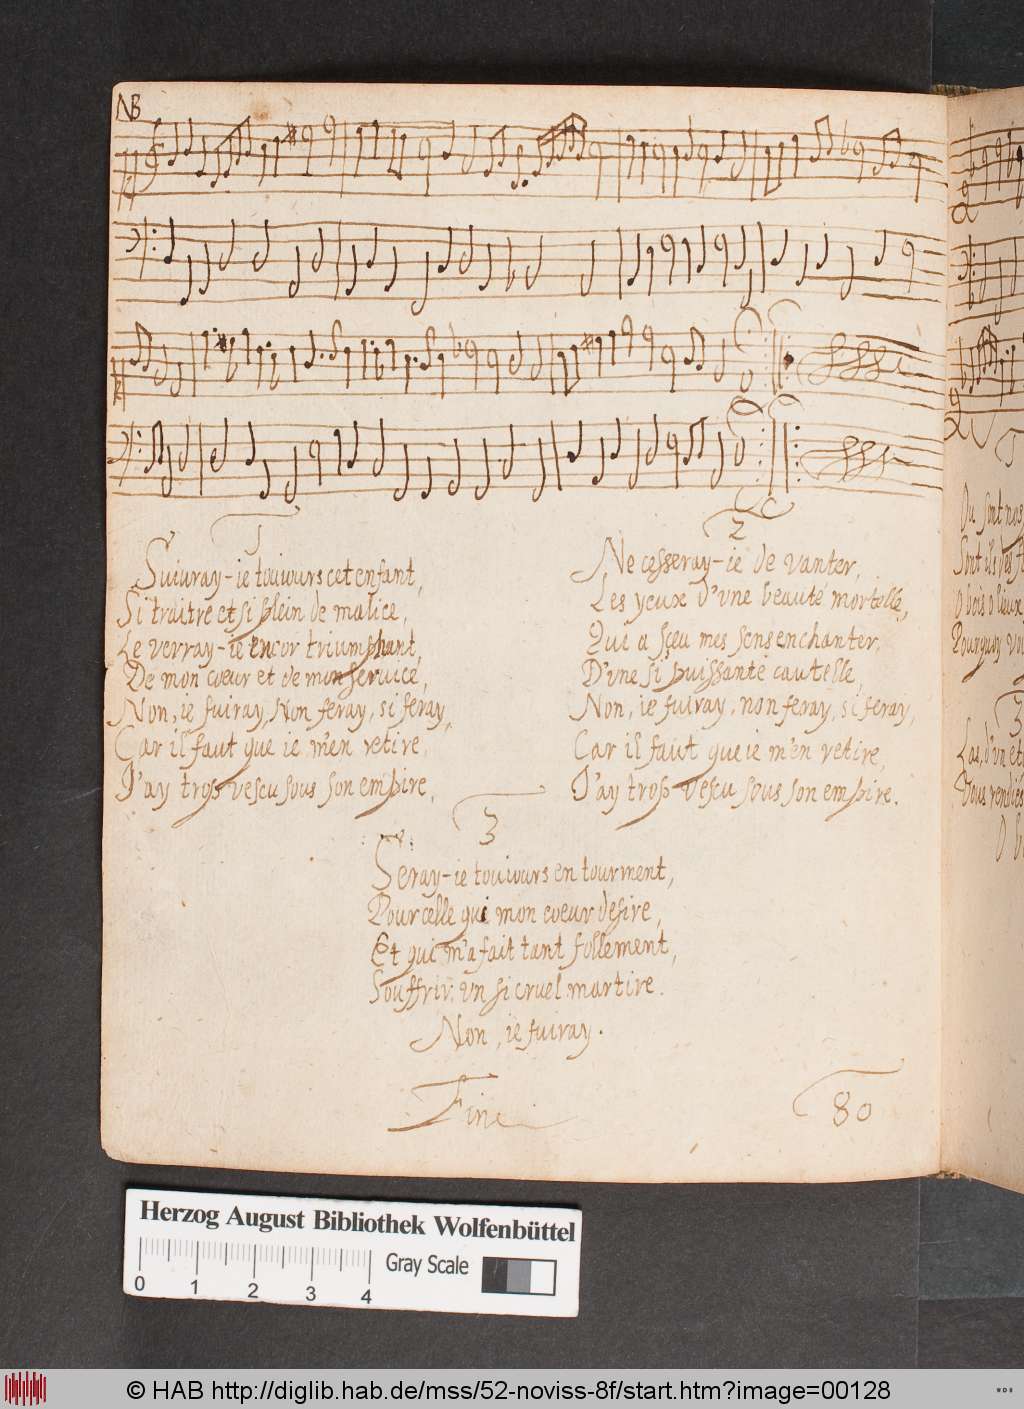 NB
1
Suiuray-ie touiours cet enfant,
Si traitre et si plein de malice,
Le verray-ie encor triumphant,
De mon cœur et de mon seruice,
Non, ie fuiray, Non feray, si feray,
Car il faut que ie m'en retire,
J'ay trop vescu sous son empire,
2
Ne cesseray-ie de vanter,
Les yeux d'vne beauté mortelle,
Qui a sçeu mes sens enchanter,
D'vne si puissante cautelle,
Non, ie fuiray, non feray, si feray,
Car il faut que ie m'en retire,
J'ay trop vescu sous son empire.
3
Seray-ie touiours en tourment,
Pour celle qui mon coeur desire,
Et qui m'a fait tant follement,
Souffrir vn si cruel martire.
Non, ie fuiray.
Fine
80
Ou sont nos
Sont ils des
O bois o lieux
Pourquoy vo
3
Las, d'vn et
Vous rendiés
Herzog August Bibliothek Wolfenbüttel
Gray Scale
0 1 2 3 4
© HAB http://diglib.hab.de/mss/52-noviss-8f/start.htm?image=00128